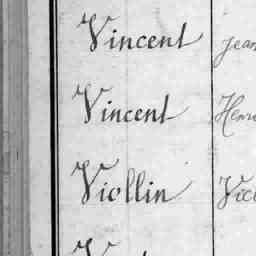 Vincent Jean
Vincent Henri
Viollin Vic